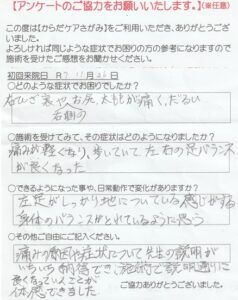 【アンケートのご協力をお願いいたします。】(※任意)
この度は【からだケアさがみ】をご利用いただき、ありがとうございました。
よろしければ同じような症状でお困りの方の参考になりますので
施術を受けたご感想をお聞かせください。
初回来院日 R7.11.26日
○どのような症状でお困りでしたか?
右ひざ裏や、お尻、太ももが痛く、だるい
右側の
○施術を受けてみて、その症状はどのようになりましたか?
痛みが軽くなり、歩いていて左右の足バランス
が良くなった
○できるようになった事や、日常動作で変化がありますか?
左足がしっかり地についている感じがする
身体のバランスがとれているように思う
○その他ご自由にご記入ください。
痛みの原因や症状について先生の説明が
いちいち納得でき、施術もご説明通りに
良くなっていくことが
体感できました
ご協力ありがとうございました。